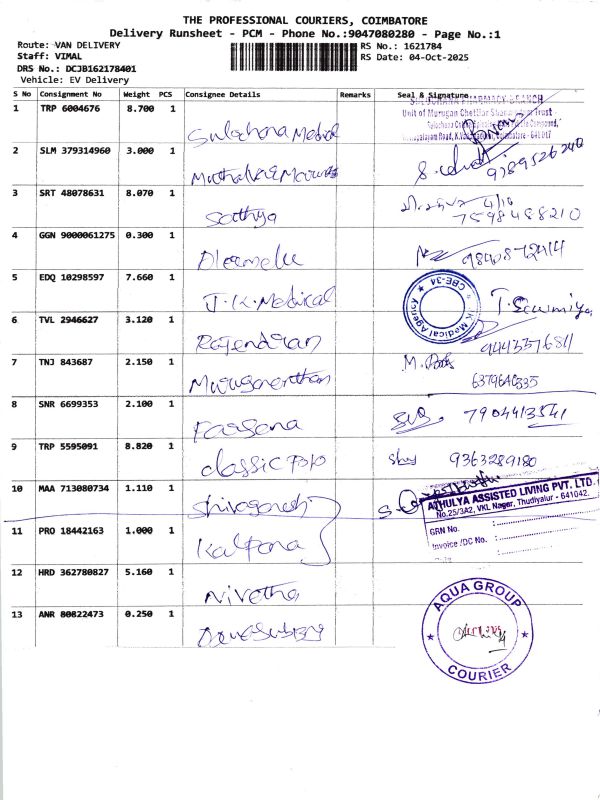 THE PROFESSIONAL COURIERS, COIMBATORE
Delivery Runsheet - PCM - Phone No.:9047080280 - Page No.:1
Route: VAN DELIVERY
Staff: VIMAL
DRS No.: DCJB162178401
Vehicle: EV Delivery
RS No.: 1621784
RS Date: 04-Oct-2025
S No Consignment No Weight PCS Consignee Details Remarks Seal & Signature
1 TRP 6004676 8.700 1 Sulochana Medical
Unit of Murugan Chettiar Trust
2 SLM 379314960 3.000 1
9789526240
3 SRT 48078631 8.070 1 Sathya 4/10
7598488210
4 GGN 9000061275 0.300 1
5 EDQ 10298597 7.660 1 J.K. Medical
J.K. Medical Agency
CBE-34
T. Sowmiya
6 TVL 2946627 3.120 1 Rajendiran
9443376811
7 TNJ 843687 2.150 1 Murugananthan
6379640335
8 SNR 6699353 2.100 1 Farsana 7904413541
9 TRP 5595091 8.820 1 classic polo 9363289180
10 MAA 713080734 1.110 1 Shivaganesh
ATHULYA ASSISTED LIVING PVT. LTD.
No.25/3A2, VKL Nagar, Thudiyalur - 641042.
GRN No. :
Invoice /DC No. :
11 PRO 18442163 1.000 1 Kalpana
12 HRD 362780827 5.160 1 Nivetha
13 ANR 80822473 0.250 1
AQUA GROUP
COURIER